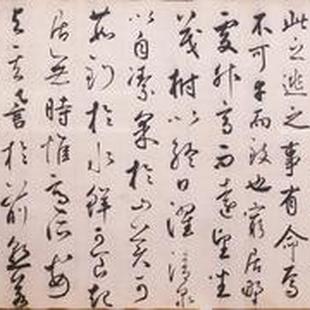 此而逃之事有命焉
不可幸而致也窮居野
處升高而遠望坐
茂樹以終日濯清泉
以自潔采於山美可
茹釣於水鮮可食起
居無時惟適所安
與其有譽於前孰若